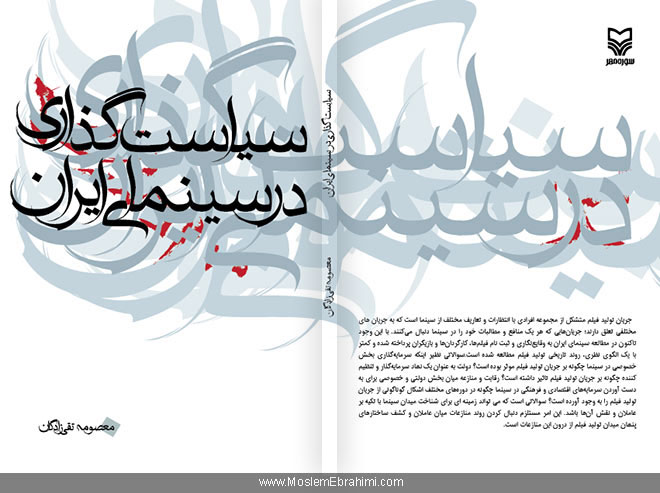 سیاست‌گذاری
در سینمای ایران
معصومه تقی‌زادگان
سیاست‌گذاری در سینمای ایران
معصومه تقی‌زادگان
سوره‌مهر
سیاست‌گذاری
در سینمای ایران
جریان تولید فیلم متشکل از مجموعه افرادی با انتظارات و تعاریف مختلف از سینما است که به جریان های
مختلفی تعلق دارند؛ جریان‌هایی که هر یک منافع و مطالبات خود را در سینما دنبال می‌کنند. با این وجود
تاکنون در مطالعه سینمای ایران به وقایع‌نگاری و ثبت نام فیلم‌ها، کارگردان‌ها و بازیگران پرداخته شده و کمتر
با یک الگوی نظری، روند تاریخی تولید فیلم مطالعه شده است.سوالاتی نظیر اینکه سرمایه‌گذاری بخش
خصوصی در سینما چگونه بر جریان تولید فیلم موثر بوده است؟ دولت به عنوان یک نهاد سرمایه‌گذار و تنظیم
کننده چگونه بر جریان تولید فیلم تاثیر داشته است؟ رقابت و منازعه میان بخش دولتی و خصوصی برای به
دست آوردن سرمایه‌های اقتصادی و فرهنگی در سینما چگونه در دوره‌های مختلف اشکال گوناگونی از جریان
تولید فیلم را به وجود آورده است؟ سوالاتی است که می تواند زمینه ای برای شناخت میدان سینما با تکیه بر
عاملان و نقش آن‌ها باشد. این امر مستلزم دنبال کردن روند منازعات میان عاملان و کشف ساختارهای
پنهان میدان تولید فیلم از درون این منازعات است.
www.MoslemEbrahimi.com